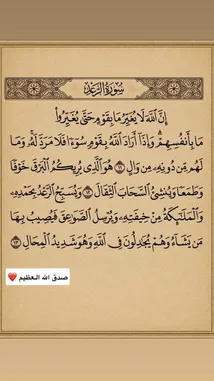 سُورَةُ الرَّعْدِ
إِنَّ ٱللَّهَ لَا يُغَيِّرُ مَا بِقَوْمٍ حَتَّىٰ يُغَيِّرُوا۟
مَا بِأَنفُسِهِمْ ۗ وَإِذَآ أَرَادَ ٱللَّهُ بِقَوْمٍ سُوٓءًا فَلَا مَرَدَّ لَهُۥ ۚ وَمَا
لَهُم مِّن دُونِهِۦ مِن وَالٍ ١١ هُوَ ٱلَّذِى يُرِيكُمُ ٱلْبَرْقَ خَوْفًا
وَطَمَعًا وَيُنشِئُ ٱلسَّحَابَ ٱلثِّقَالَ ١٢ وَيُسَبِّحُ ٱلرَّعْدُ بِحَمْدِهِۦ
وَٱلْمَلَـٰٓئِكَةُ مِنْ خِيفَتِهِۦ وَيُرْسِلُ ٱلصَّوَٰعِقَ فَيُصِيبُ بِهَا
مَن يَشَآءُ وَهُمْ يُجَـٰدِلُونَ فِى ٱللَّهِ وَهُوَ شَدِيدُ ٱلْمِحَالِ ١٣
صدق الله العظيم ❤️